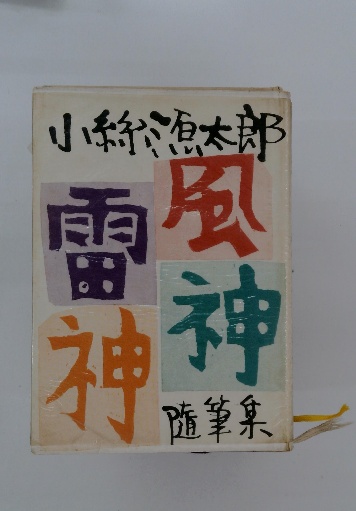 小絲源太郎
風神
雷神
隨筆集